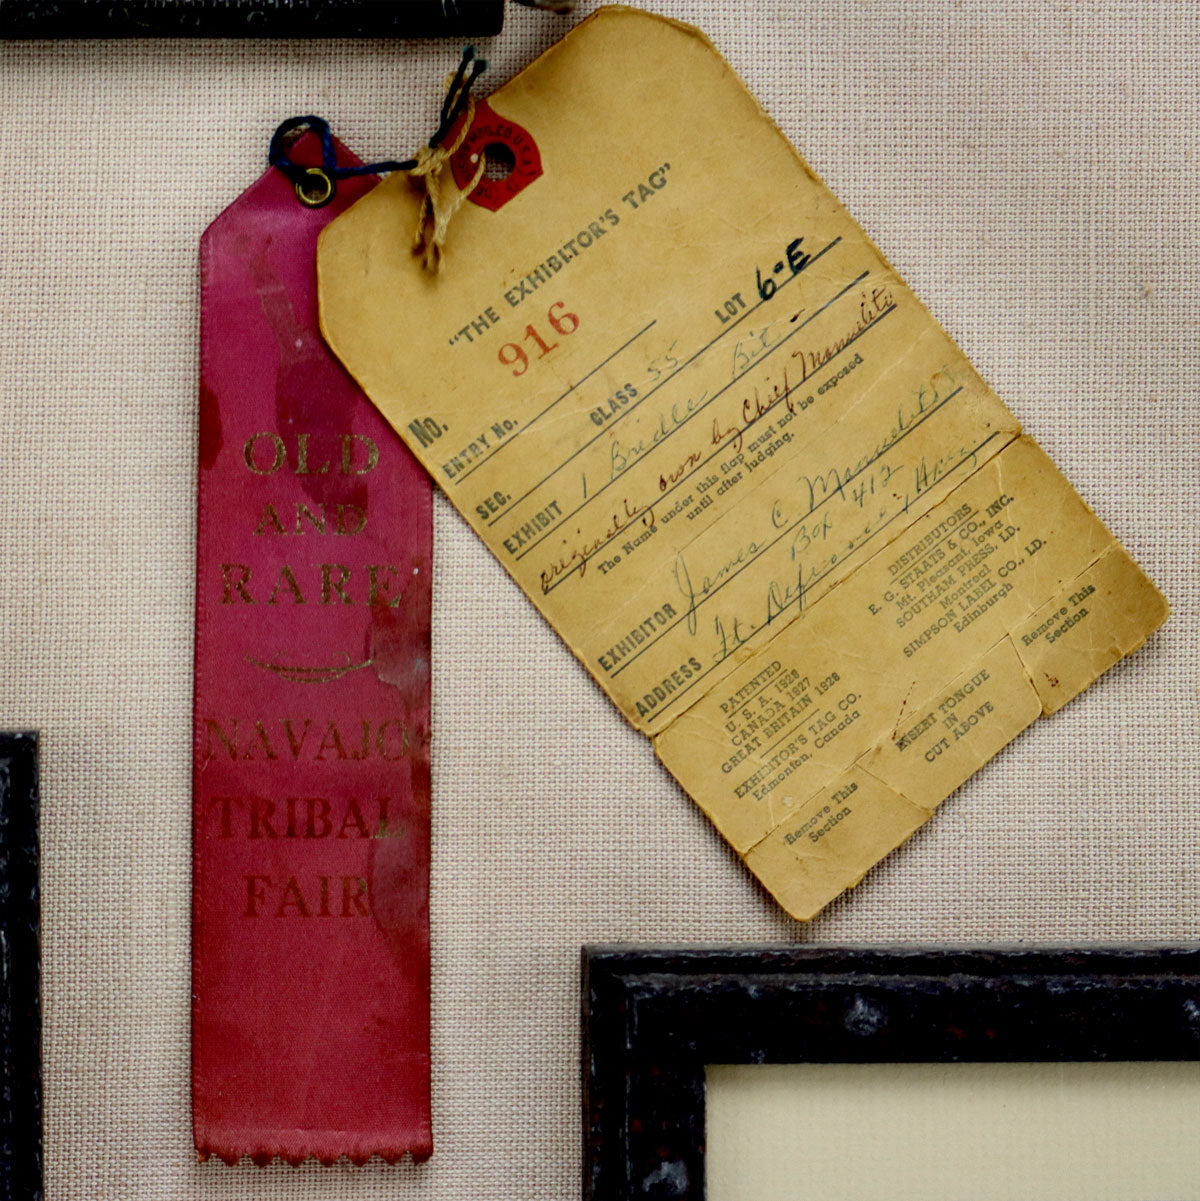 OLD
AND
RARE
NAVAJO
TRIBAL
FAIR
MFG. CO. U.S.A.
"THE EXHIBITOR'S TAG"
No. 916
ENTRY No. LOT 6-E
SEC. CLASS 55
EXHIBIT 1 Bridle Bit -
originally own by Chief Manuelito
The Name under this flap must not be exposed
until after judging.
EXHIBITOR James C Manuelito
Box 412
ADDRESS Ft. Defiance, Ariz.
PATENTED
U. S. A. 1928
CANADA 1927
GREAT BRITAIN 1928
EXHIBITOR'S TAG CO.
Edmonton, Canada
DISTRIBUTORS
E. G. STAATS & CO., INC.
Mt. Pleasant, Iowa
SOUTHAM PRESS, LD.
Montreal
SIMPSON LABEL CO., LD.
Edinburgh
Remove This
Section
INSERT TONGUE
IN
CUT ABOVE
Remove This
Section